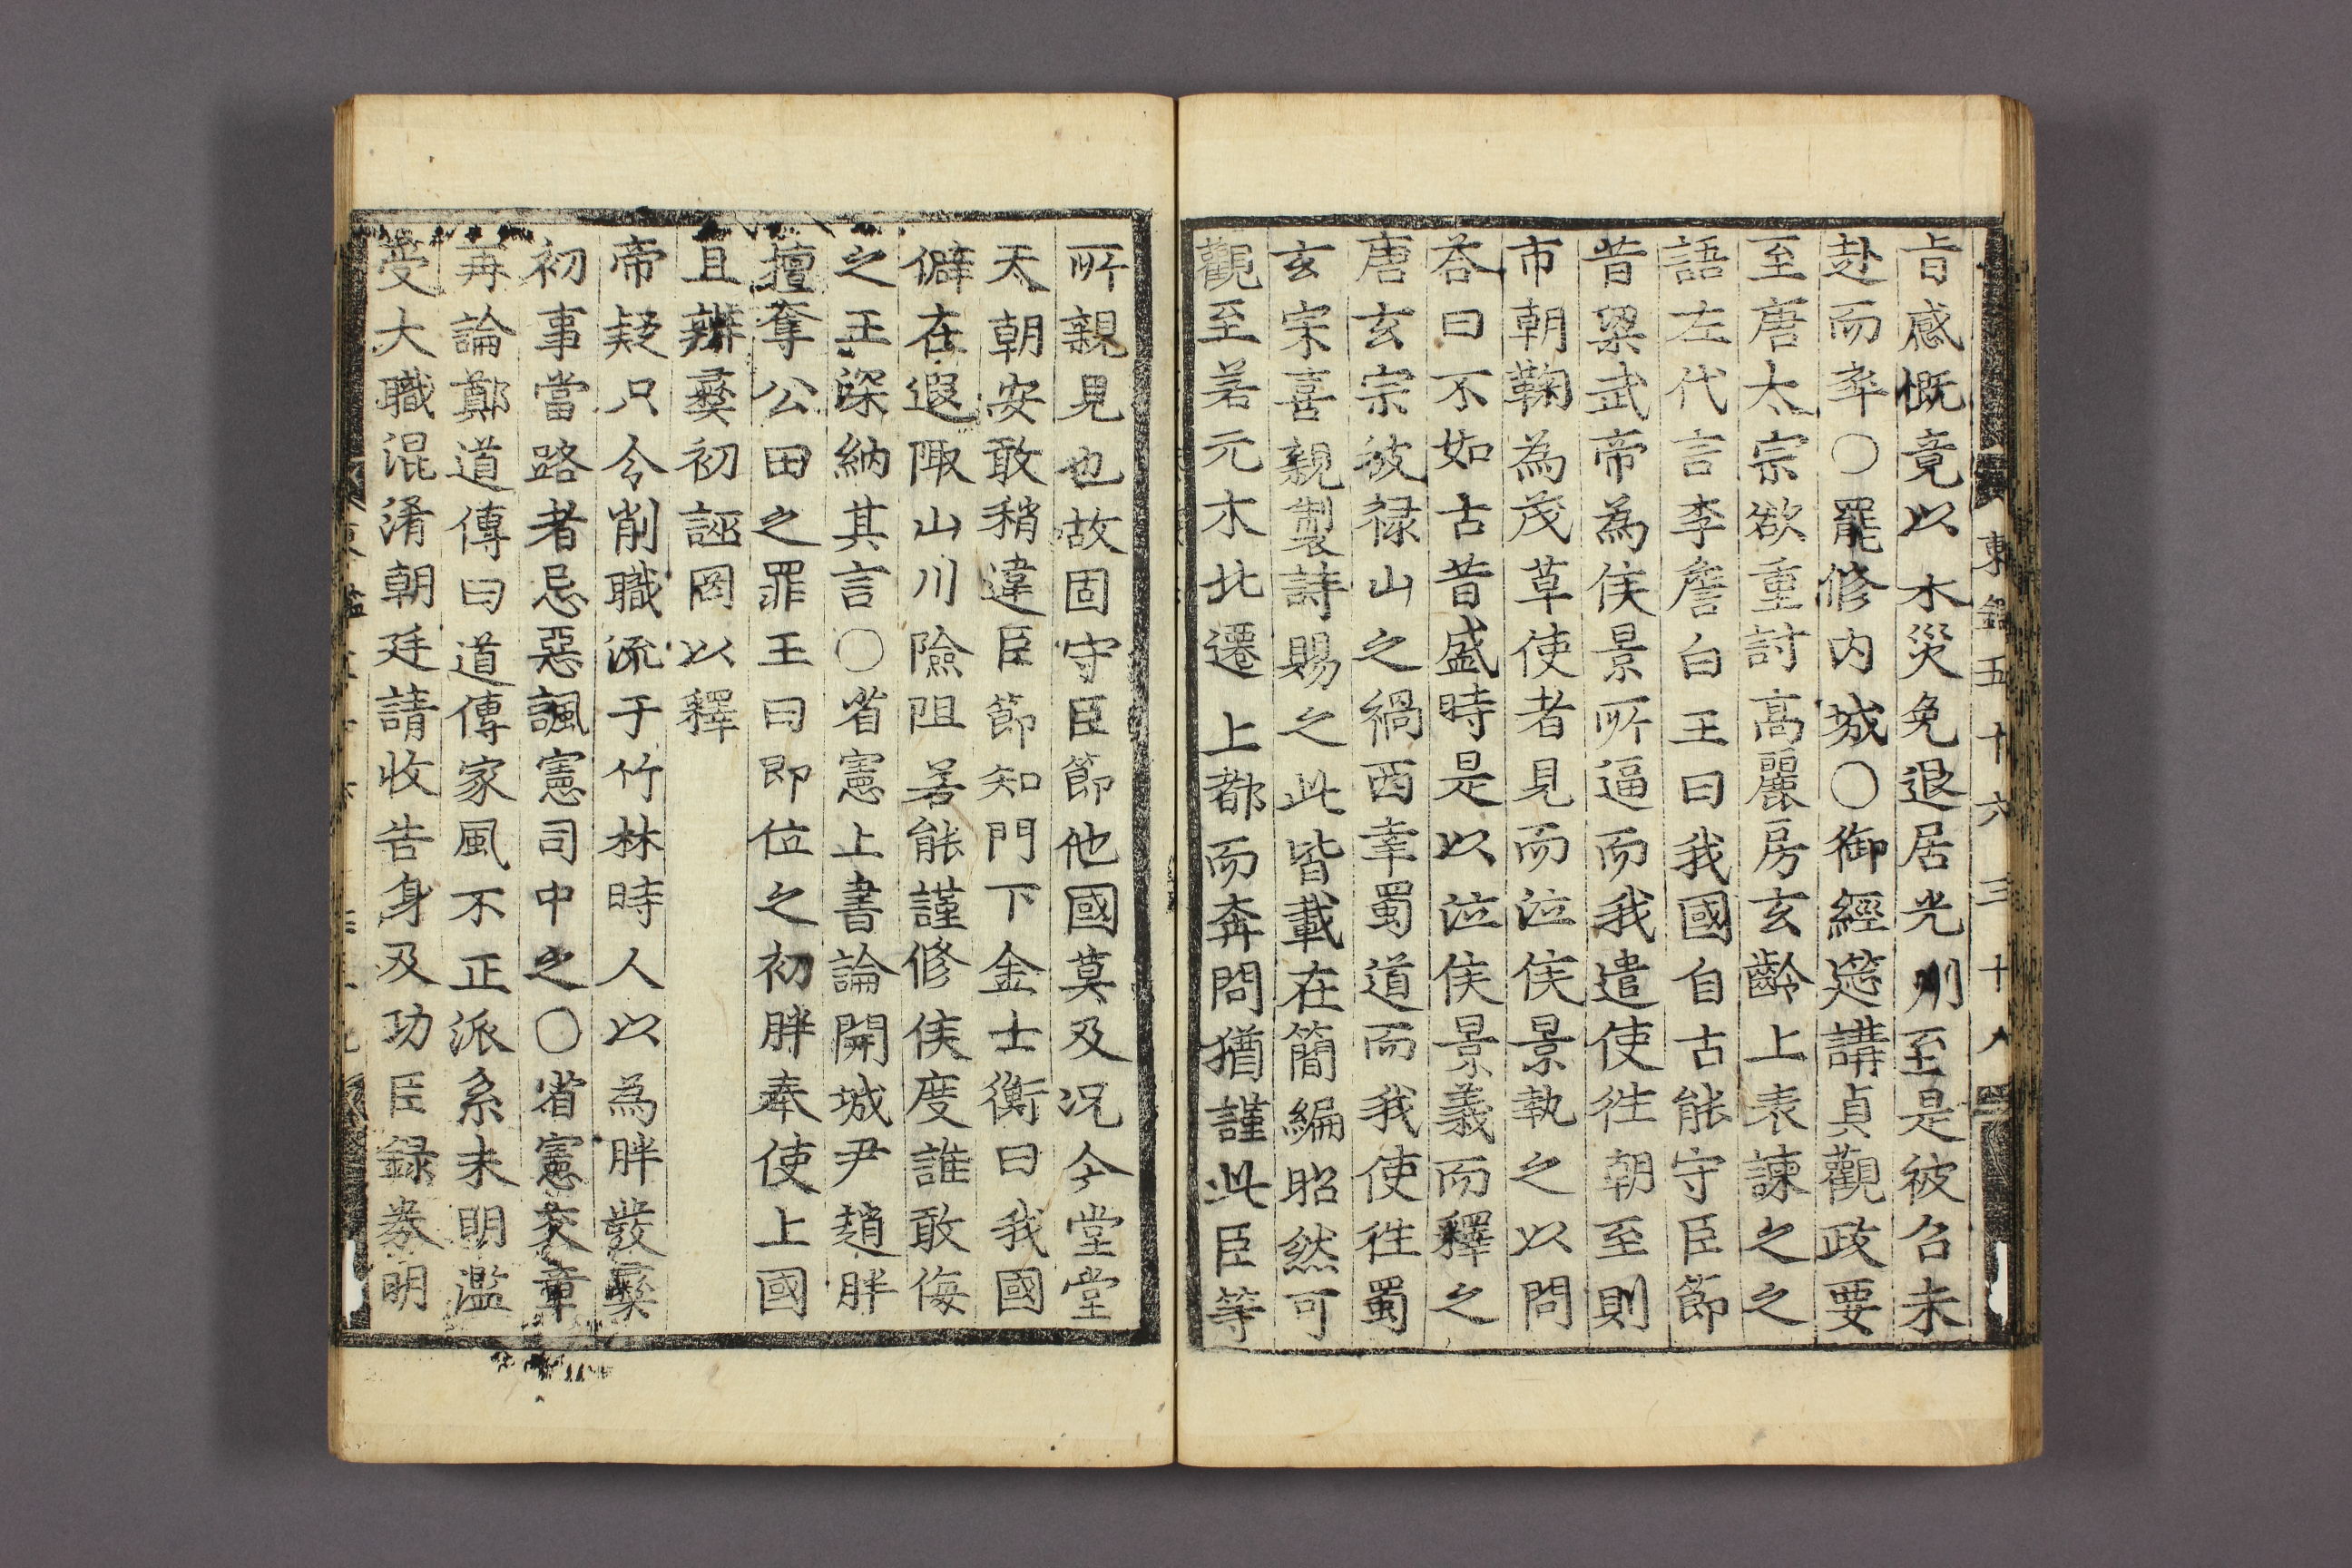 旨感慨竟以水災免退居光州至是被召未
赴而卒○罷修內城○御經筵講貞觀政要
至唐太宗欲重討高麗房玄齡上表諫之之
語左代言李詹白王曰我國自古能守臣節
昔梁武帝為侯景所逼而我遣使徃朝至則
市朝鞠為茂草使者見而泣侯景執之以問
荅曰不如古昔盛時是以泣侯景義而釋之
唐玄宗彼祿山之禍西幸蜀道而我使徃蜀
玄宗喜親製詩賜之此皆載在簡編昭然可
觀至若元木北遷上都而奔問猶謹此臣等
所親見也故固守臣節他國莫及況今堂堂
天朝安敢稍違臣節知門下金士衡曰我國
僻在遐陬山川險阻若能謹修侯度誰敢侮
之王深納其言○省憲上書論開城尹趙胖
擅奪公田之罪王曰即位之初胖奉使上國
且辨彛初誣罔以釋
帝疑只令削職流于竹林時人以為胖發彛
初事當路者忌惡諷憲司中之○省憲交章
再論鄭道傳曰道傳家風不正派系未明濫
受大職混淆朝廷請收告身及功臣錄券明
東鑑五十六 三十八